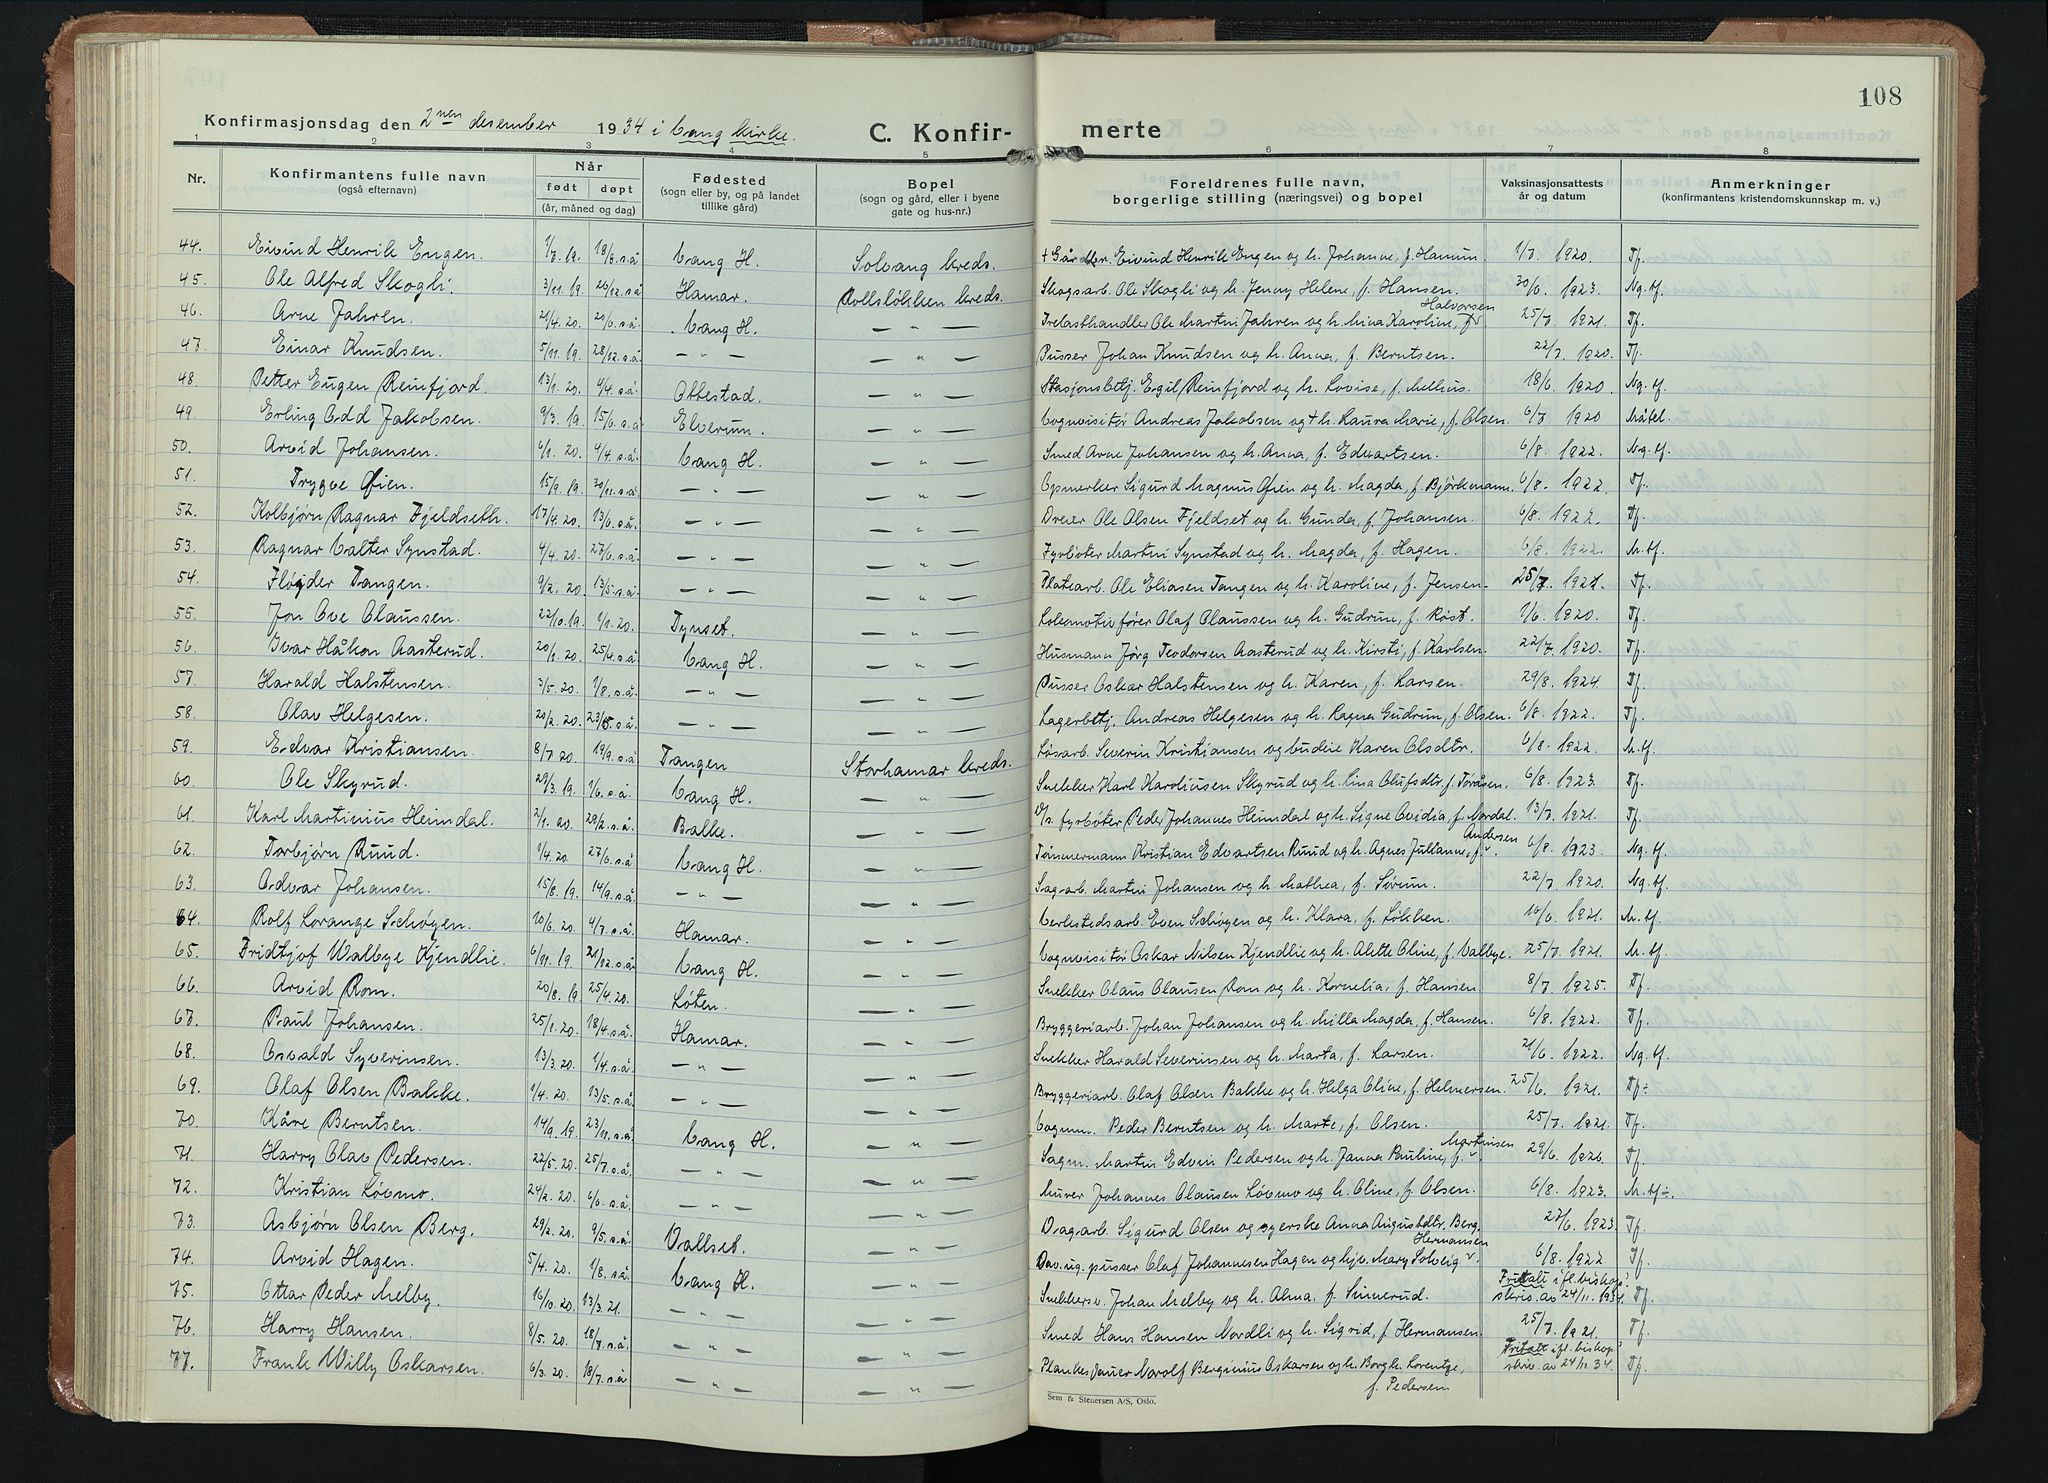 108
Konfirmasjonsdag den 2nen desember 1934 i Vang kirke.
C. Konfir- merte
1 2 3 4 5 6 7 8
Nr. Konfirmantens fulle navn (også efternavn) Når født døpt (år, måned og dag) Fødested (sogn eller by, og på landet tillike gård) Bopel (sogn og gård, eller i byene gate og hus-nr.) Foreldrenes fulle navn, borgerlige stilling (næringsvei) og bopel Vaksinasjonsattests år og datum Anmerkninger (konfirmantens kristendomskunnskap m. v.)
44. Eivind Henrik Engen. 1/7 19. 18/8. s.å Vang H. Solvang kreds. + Gårdbr. Eivind Henrik Engen og h. Johanne, f. Hamun. 1/7 1920. Tf.
45. Ole Alfred Skogli. 3/11 19. 26/12. s.å Hamar. Rollsløkken kreds. Skogsarb. Ole Skogli og h. Jenny Helene, f. Hansen. 30/6 1923. Ng. tf.
46. Arne Jahren. 21/4. 20. 20/6. s.å. Vang H. — " — Trelasthandler Ole Martin Jahren og h. Mina Karoline, f. Halvorsen 25/7 1921. Tf.
47. Einar Knudsen. 5/11. 19. 28/12. s.å. — " — — " — Pusser Johan Knudsen og h. Anna, f. Berntsen. 22/7 1920. Tf.
48. Petter Eugen Reinfjord. 13/1. 20. 4/4. s.å. Ottestad. — " — Stasjonsbetj. Egil Reinfjord og h. Lovise, f. Melhus. 18/6 1920 Ng. tf.
49. Erling Odd Jakobsen. 9/3. 19. 15/6. s.å Elverum. — " — Vognvisitør Andreas Jakobsen og + h. Laura Marie, f. Olsen. 6/7 1920 Måtel.
50. Arvid Johansen. 6/1. 20. 4/4. s.å. Vang H. — " — Smed Arne Johansen og h. Anna, f. Edvartsen. 6/8. 1922. Ng. tf.
51. Trygve Øien. 15/9. 19. 20/11. s.å — " — — " — Opmerker Sigurd Magnus Øien og h. Magda, f. Björkmann. 6/8. 1922. Tf.
52. Kolbjørn Ragnar Fjeldseth. 17/4. 20. 13/6. s.å. — " — — " — Dreier Ole Olsen Fjeldset og h. Gunda, f. Johansen. 6/8. 1922. Tf.
53. Ragnar Valter Synstad. 4/4. 20. 27/6. s.å. — " — — " — Fyrbøter Martin Synstad og h. Magda, f. Hagen. 6/8. 1922. M. tf.
54. Fløjder Tangen. 9/2. 20 13/5. s.å. — " — — " — Platearb. Ole Eliasen Tangen og h. Karoline, f. Jensen. 25/7. 1921. Tf.
55. Jon Ove Claussen. 22/10. 19. 1/1. 20. Tynset. — " — Lokomotivfører Olaf Claussen og h. Gudrun, f. Røst. 1/6. 1920. Tf.
56. Ivar Håkon Aasterud. 20/1. 20. 25/4. s.å. Vang H. — " — Husmann Jørg Teodorsen Aasterud og h. Kirsti, f. Karlsen. 22/7 1920. Tf.
57. Harald Halstensen. 3/5. 20. 1/8. s.å. — " — — " — Pusser Oskar Halstensen og h. Karen, f. Larsen. 29/8. 1924. Tf.
58. Olav Helgesen. 20/2. 20. 23/5. s.å. — " — — " — Lagerbetj. Andreas Helgesen og h. Ragna Gudrun, f. Olsen. 6/8. 1922. Tf.
59. Edvar Kristiansen. 8/7 20. 19/9. s.å Tangen Storhamar kreds. Løsarb. Severin Kristiansen og budeie Karen Olsdtr. 6/8. 1922. M. tf.
60. Ole Skyrud. 29/3. 19. 1/6. s.å. Vang H. — " — Snekker Karl Karolinsen Skyrud og h. Lina Olufsdtr. f. Toråsen. 6/8. 1923. Tf.
61. Karl Martinius Heimdal. 2/1. 20. 29/2. s.å Balke. — " — fyrbøter Peder Johannes Heimdal og h. Signe Ovidia, f. Nordal. 13/7 1921. Tf.
62. Torbjørn Ruud. 1/4. 20. 27/6. s.å. Vang H. — " — Tømmermann Kristian Edvartsen Ruud og h. Agnes Julianne, f. Andersen 6/8. 1923. Ng. tf.
63. Edvar Johansen. 15/8. 19. 14/9. s.å — " — — " — Sagarb. Martin Johansen og h. Mathea, f. Sørum. 22/7 1920. Ng. tf.
64. Rolf Lorange Schøyen. 10/6. 20. 4/7. s.å. Hamar. — " — Verkstedsarb. Even Schøyen og h. Klara, f. Løkken. 16/6. 1921. M. tf.
65. Fridtjof Walbye Kjendlie. 6/11. 19. 21/12. s.å Vang H. — " — Vognvisitør Oskar Nilsen Kjendlie og h. Alette Oline, f. Valbye. 25/7. 1921. M. tf.
66. Arvid Rom. 20/8. 19 25/4. 20. Løten. — " — Snekker Claus Clausen Rom og h. Kornelia, f. Hansen 8/7 1925. Tf.
67. Paul Johansen. 25/1. 20. 18/4. s.å. Hamar. — " — Bryggeriarb. Johan Johansen og h. Milla Magda, f. Hansen. 6/8. 1922. Tf.
68. Osvald Syverinsen. 13/3. 20. 1/4. s.å — " — — " — Snekker Harald Severinsen og h. Marta, f. Larsen. 21/6. 1922. Ng. tf.
69. Olaf Olsen Bakke. 1/4. 20. 13/5. s.å. — " — — " — Bryggeriarb. Olaf Olsen Bakke og h. Helga Oline, f. Helmersen. 25/6. 1921. Tf÷
70. Kåre Berntsen. 14/9. 19. 23/11. s.å Vang H. — " — Vognm. Peder Berntsen og h. Marte, f. Olsen. 25/7. 1921. Tf.
71. Harry Olav Pedersen. 22/5. 20. 25/7. s.å — " — — " — Sagm. Martin Edvin Pedersen og h. Janna Pauline, f. Martinsen 29/6. 1926. Tf.
72. Kristian Løvmo. 24/2. 20. 6/6. s.å. — " — — " — Murer Johannes Clausen Løvmo og h. Oline, f. Olsen. 6/8. 1923. M. tf÷.
73. Asbjørn Olsen Berg. 29/2. 20. 9/5. s.å. Vallset. — " — Dagarb. Sigurd Olsen og syerske Anna Augustdtr. Berg. 27/6. 1923. Tf.
74. Arvid Hagen. 5/4. 20. 1/8. s.å Vang H. — " — Dav. ug. pusser Olaf Johannesen Hagen og hjv. Mary Solveig Hermansen 6/8. 1922 Tf.
75. Ottar Peder Melby. 16/10. 20. 13/3. 21. — " — — " — Snekkersv. Johan Melby og h. Alma, f. Simmerud. Fritatt ifl. bishop. skriv. av 24/11. 1934. Tf.
76. Harry Hansen. 8/5. 20. 18/7. s.å. — " — — " — Smed Hans Hansen Nordli og h. Sigrid, f. Hermansen. 25/7. 1921. Tf.
77. Frank Willy Oskarsen. 6/3. 20. 18/7. s.å — " — — " — Norolf Berginius Oskarsen og h. Borgh. Lorentze, f. Pedersen Fritatt ifl. bishop. skriv. av 24/11. 34. Tf.
Sem & Stenersen A/S, Oslo.